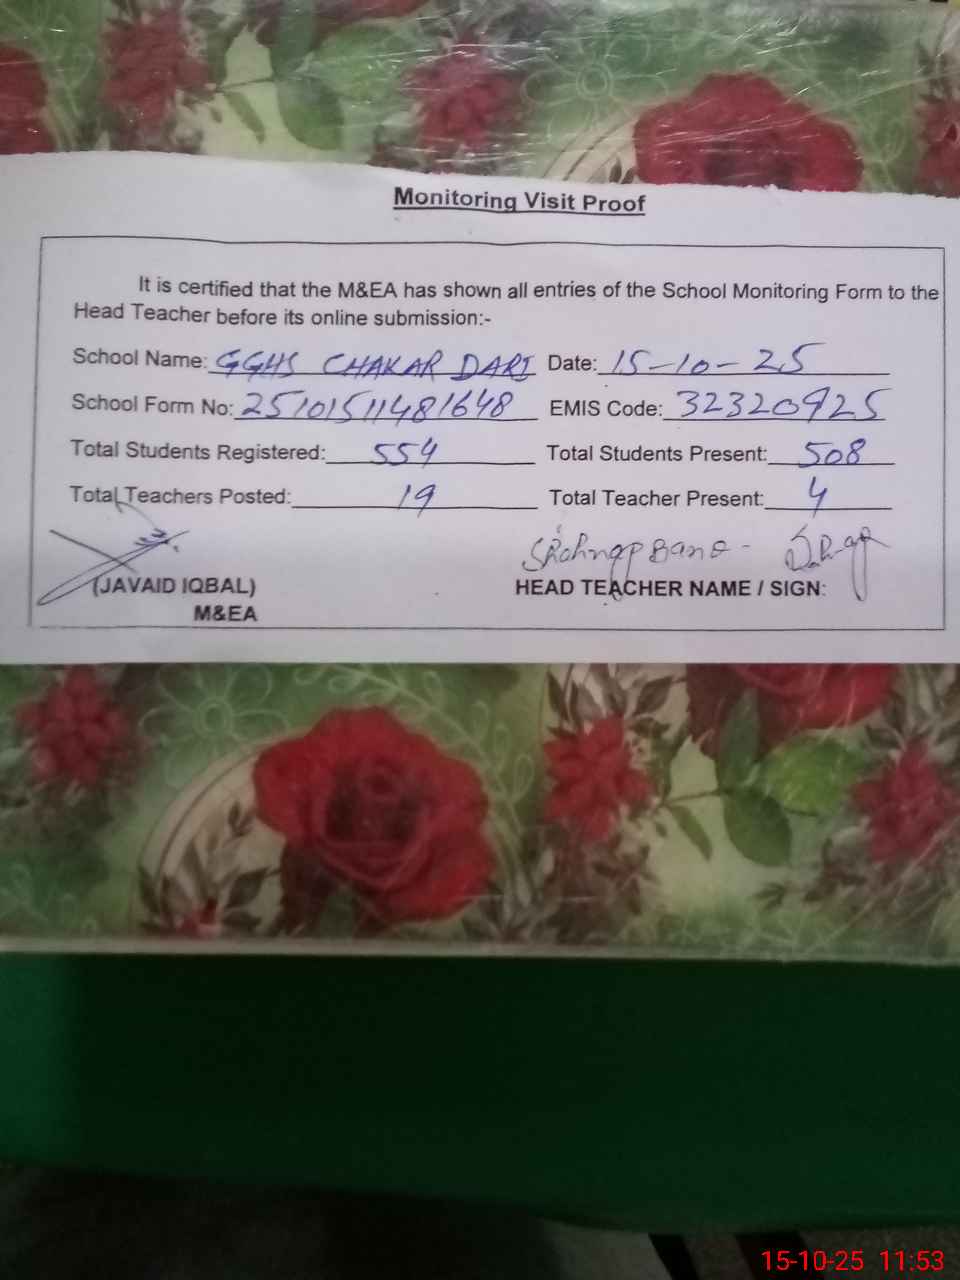 Monitoring Visit Proof
It is certified that the M&EA has shown all entries of the School Monitoring Form to the
Head Teacher before its online submission:-
School Name: GGHS CHAKAR DARI Date: 15-10-25
School Form No: 25101511481648 EMIS Code: 32320925
Total Students Registered: 554 Total Students Present: 508
Total Teachers Posted: 19 Total Teacher Present: 4
Bano -
(JAVAID IQBAL) HEAD TEACHER NAME / SIGN:
M&EA
15-10-25 11:53